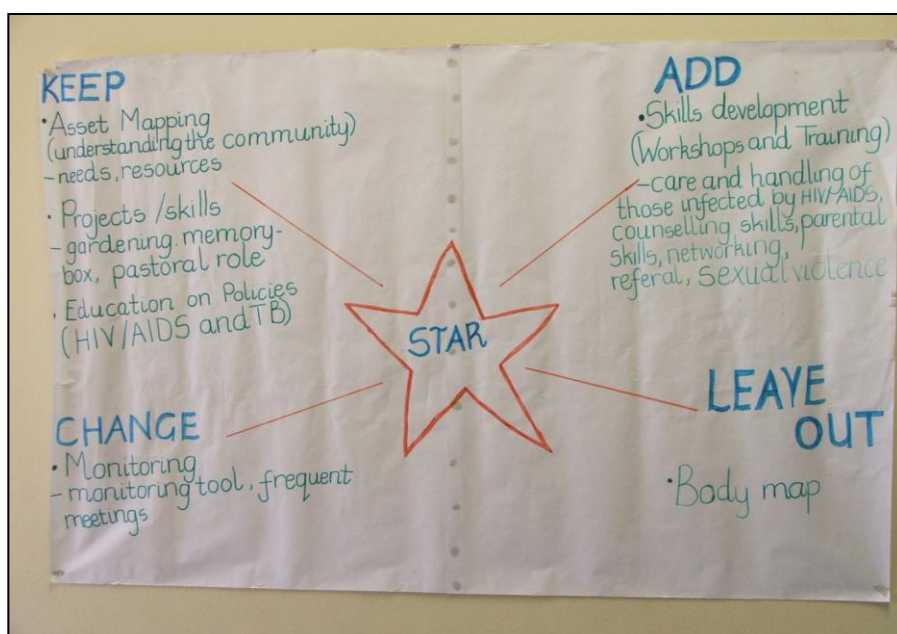 KEEP
• Asset Mapping
(understanding the community)
- needs, resources
• Projects / skills
- gardening. memory-
box, pastoral role
• Education on Policies
(HIV/AIDS and TB)
ADD
• Skills development
(Workshops and Training)
- care and handling of
those infected by HIV/AIDS,
counselling skills, parental
skills, networking,
referal, sexual violence
STAR
CHANGE
• Monitoring
- monitoring tool, frequent
meetings
LEAVE
OUT
• Body map